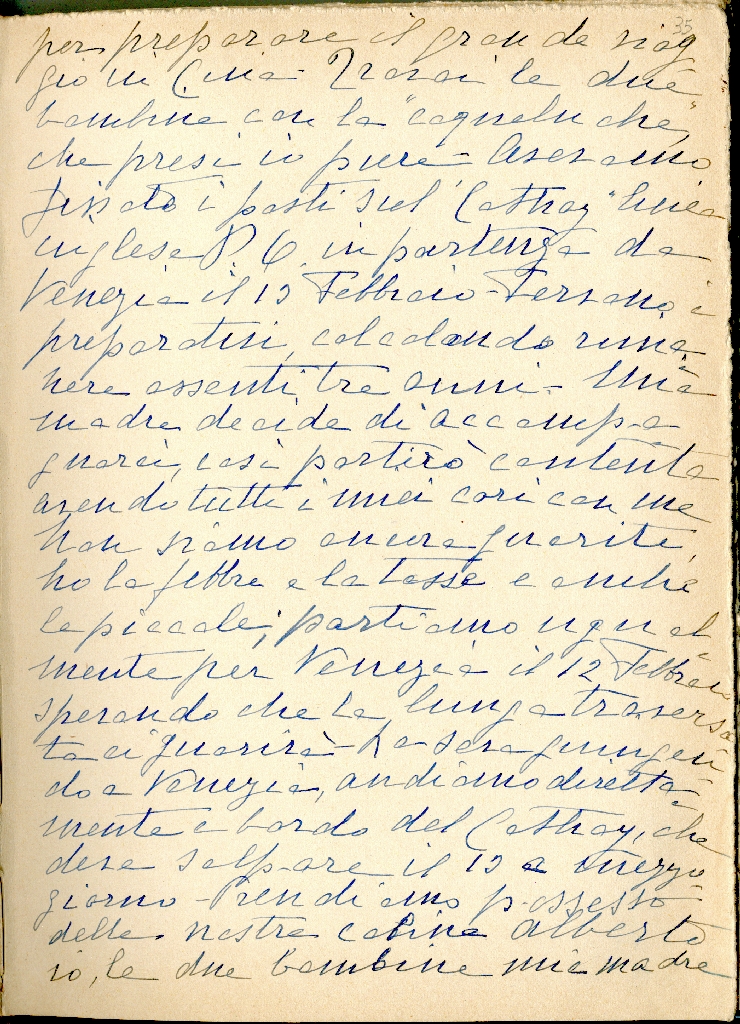 35
per preparare il grande viag
gio in Cina - Trovai le due
bambine con la "coqueluche",
che presi io pure - Avevamo
fissato i posti sul "Cathay" linea
inglese P. O. in partenza da
Venezia il 13 Febbraio - Fervono i
preparativi, calcolando rima-
nere assenti tre anni - Mia
madre decide di accompa-
gnarci, così partirò contenta
avendo tutti i miei cari con me
Non siamo ancora guarite,
ho la febbre e la tosse e anche
le piccole; partiamo ugual-
mente per Venezia il 12 Febbraio
sperando che la lunga traversa-
ta ci guarirà - La sera giungen-
do a Venezia, andiamo diretta-
mente a bordo del Cathay, che
deve salpare il 13 a mezzo-
giorno - Prendiamo possesso
delle nostre cabine Alberto
io, le due bambine mia madre